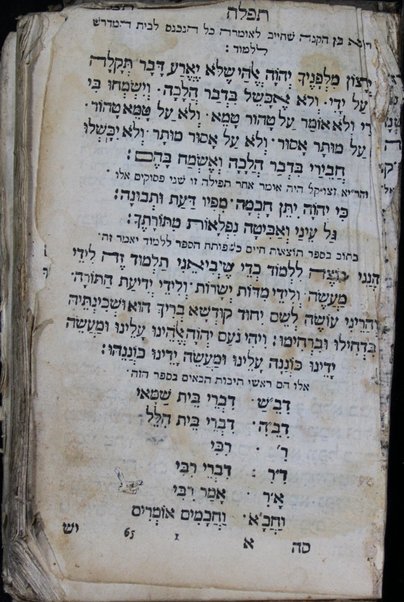 תפלה
בן הקנה שחייב לאומרה כל הנכנס לבית המדרש
ללמוד:
רָצוֹן מִלְּפָנֶיךָ יְהֹוָה אֱלֹהַי שֶׁלֹּא יֶאֱרַע דְּבַר תַּקָּלָה
עַל יָדִי. וְלֹא אֶכָּשֵׁל בִּדְבַר הֲלָכָה. וְיִשְׂמְחוּ בִּי
וְלֹא אוֹמַר עַל טָהוֹר טָמֵא. וְלֹא עַל טָמֵא טָהוֹר.
עַל מוּתָּר אָסוּר. וְלֹא עַל אָסוּר מוּתָּר. וְלֹא יִכָּשְׁלוּ
חֲבֵירַי בִּדְבַר הֲלָכָה וְאֶשְׂמַח בָּהֶם:
והר״א זצוק״ל היה אומר אחר תפילה זו שני פסוקים אלו
כִּי יְהֹוָה יִתֵּן חָכְמָה. מִפִּיו דַּעַת וּתְבוּנָה:
גַּל עֵינַי וְאַבִּיטָה נִפְלָאוֹת מִתּוֹרָתֶךָ:
כתוב בספר תוצאות חיים כשפותח הספר ללמוד יאמר זה
הִנְנִי רוֹצֶה לִלְמוֹד כְּדֵי שֶׁיְּבִיאֵנִי תַּלְמוּד זֶה לִידֵי
מַעֲשֶׂה. וְלִידֵי מִדּוֹת יְשָׁרוֹת. וְלִידֵי יְדִיעַת הַתּוֹרָה.
וַהֲרֵינִי עוֹשֶׂה לְשֵׁם יִחוּד קוּדְשָׁא בְּרִיךְ הוּא וּשְׁכִינְתֵּיהּ
בִּדְחִילוּ וּבִרְחִימוּ: וִיהִי נוֹעַם יְהֹוָה אֱלֹהֵינוּ עָלֵינוּ וּמַעֲשֵׂה
יָדֵינוּ כּוֹנְנָה עָלֵינוּ וּמַעֲשֵׂה יָדֵינוּ כּוֹנְנֵהוּ:
אלו הם ראשי תיבות הבאים בספר הזה
דִּבֵ״שׁ: דִּבְרֵי בֵּית שַׁמַּאי
דִּבֵ״ה: דִּבְרֵי בֵּית הִלֵּל
ר׳: רַבִּי
דִּ״ר: דִּבְרֵי רַבִּי
אָ״ר: אָמַר רַבִּי
וַחֲכָ״א: וַחֲכָמִים אוֹמְרִים
סה א 1 65 יש